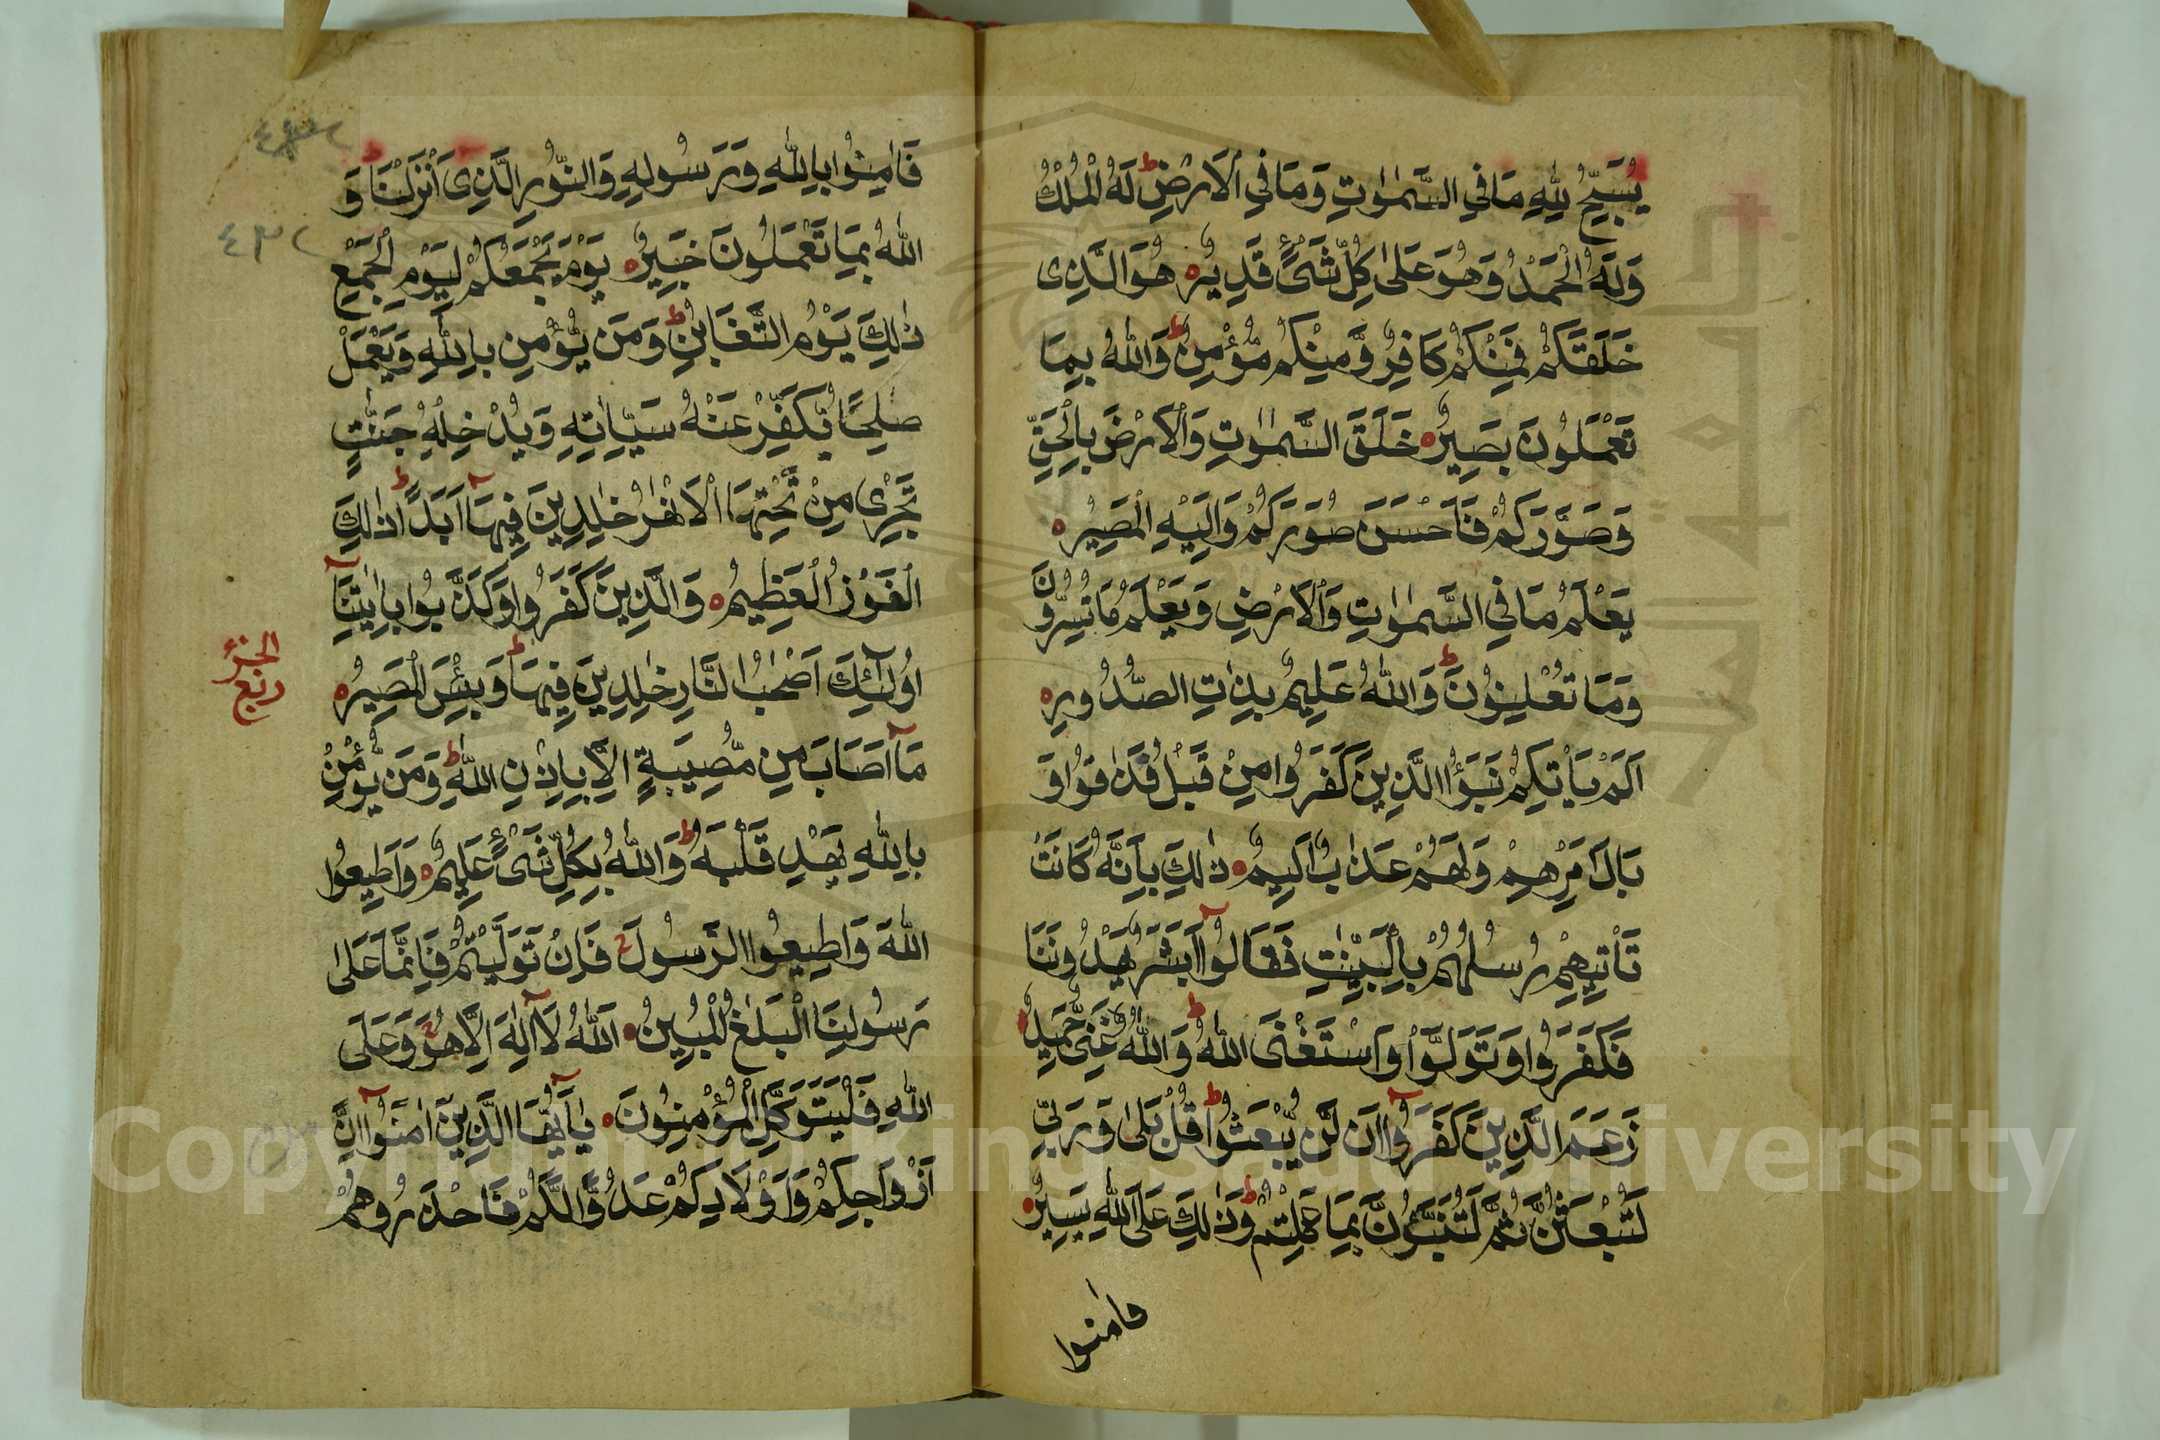 يُسَبِّحُ لِلّٰهِ مَا فِي السَّمٰوٰتِ وَمَا فِي الْاَرْضِ ط لَهُ الْمُلْكُ
وَلَهُ الْحَمْدُ وَهُوَ عَلٰى كُلِّ شَىْءٍ قَدِيْرٌ ه هُوَ الَّذِى
خَلَقَكُمْ فَمِنْكُمْ كَافِرٌ وَّمِنْكُمْ مُّؤْمِنٌ ط وَاللّٰهُ بِمَا
تَعْمَلُونَ بَصِيْرٌ ه خَلَقَ السَّمٰوٰتِ وَالْاَرْضَ بِالْحَقِّ
وَصَوَّرَكُمْ فَاَحْسَنَ صُوَرَكُمْ وَاِلَيْهِ الْمَصِيْرُ ه
يَعْلَمُ مَا فِي السَّمٰوٰتِ وَالْاَرْضِ وَيَعْلَمُ مَا تُسِرُّوْنَ
وَمَا تُعْلِنُوْنَ ط وَاللّٰهُ عَلِيْمٌ بِذَاتِ الصُّدُورِ ه
اَلَمْ يَاْتِكُمْ نَبَؤُا الَّذِينَ كَفَرُوا مِنْ قَبْلُ فَذَاقُوْا وَ
بَالَ اَمْرِهِمْ وَلَهُمْ عَذَابٌ اَلِيمٌ ه ذٰلِكَ بِاَنَّهُ كَانَتْ
تَأْتِيهِمْ رُسُلُهُمْ بِالْبَيِّنٰتِ فَقَالُوْا اَبَشَرٌ يَهْدُوْنَنَا
فَكَفَرُوا وَتَوَلَّوْا وَاسْتَغْنَى اللّٰهُ ط وَاللّٰهُ غَنِىٌّ حَمِيدٌ ه
زَعَمَ الَّذِينَ كَفَرُوْا اَنْ لَّنْ يُّبْعَثُوْا ط قُلْ بَلٰى وَرَبِّى
لَتُبْعَثُنَّ ثُمَّ لَتُنَبَّؤُنَّ بِمَا عَمِلْتُمْ ط وَذٰلِكَ عَلَى اللّٰهِ يَسِيْرٌ ه
فامنوا
فَاٰمِنُوْا بِاللّٰهِ وَرَسُولِهٖ وَالنُّوْرِ الَّذِى اَنْزَلْنَا ط وَ
اللّٰهُ بِمَا تَعْمَلُونَ خَبِيْرٌ ه يَوْمَ يَجْمَعُكُمْ لِيَوْمِ الْجَمْعِ
ذٰلِكَ يَوْمُ التَّغَابُنِ ط وَمَنْ يُّؤْمِنْ بِاللّٰهِ وَيَعْمَلْ
صٰلِحًا يُّكَفِّرْ عَنْهُ سَيِّاٰتِهٖ وَيُدْخِلْهُ جَنّٰتٍ
تَجْرِىْ مِنْ تَحْتِهَا الْاَنْهٰرُ خٰلِدِيْنَ فِيْهَا اَبَدًا ط ذٰلِكَ
الْفَوْزُ الْعَظِيْمُ ه وَالَّذِينَ كَفَرُوا وَكَذَّبُوا بِاٰيٰتِنَا
اُولٰئِكَ اَصْحٰبُ النَّارِ خٰلِدِيْنَ فِيْهَا ط وَبِئْسَ الْمَصِيْرُ ه
الجزء
ربع
مَا اَصَابَ مِنْ مُّصِيْبَةٍ اِلَّا بِاِذْنِ اللّٰهِ ط وَمَنْ يُّؤْمِنْ
بِاللّٰهِ يَهْدِ قَلْبَهُ ط وَاللّٰهُ بِكُلِّ شَىْءٍ عَلِيْمٌ ه وَاَطِيعُوا
اللّٰهَ وَاَطِيعُوا الرَّسُولَ ج فَاِنْ تَوَلَّيْتُمْ فَاِنَّمَا عَلٰى
رَسُولِنَا الْبَلٰغُ الْمُبِيْنُ ه اَللّٰهُ لَا اِلٰهَ اِلَّا هُوَ وَعَلَى
اللّٰهِ فَلْيَتَوَكَّلِ الْمُؤْمِنُونَ ه يٰاَيُّهَا الَّذِيْنَ اٰمَنُوْا اِنَّ
اَزْوَاجِكُمْ وَاَوْلَادِكُمْ عَدُوًّا لَّكُمْ فَاحْذَرُوهُمْ
Copyright © King Saud University